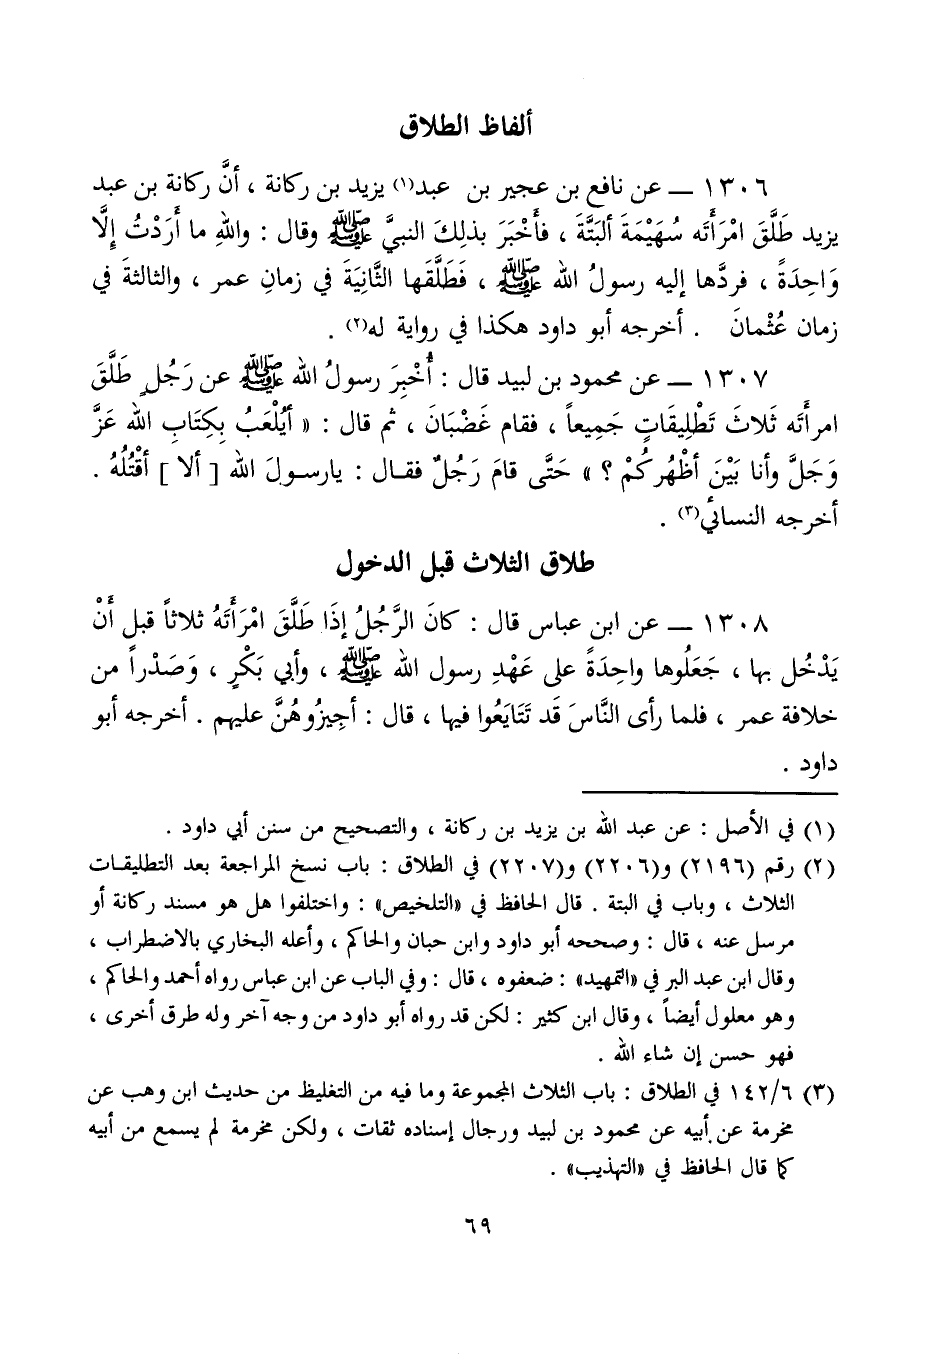 ألفاظ الطلاق
١٣٠٦ ــ عن نافع بن عجير بن عبد(١) يزيد بن ركانة ، أنَّ ركانة بن عبد
يزيد طَلَّقَ امْرَأَتَه سُهَيْمَةَ ألبَتَّةَ ، فأَخْبَرَ بذلِكَ النبيَّ ﷺ وقال : واللهِ ما أَرَدْتُ إلَّا
وَاحِدَةً ، فردَّها إليه رسولُ الله ﷺ ، فَطَلَّقَها الثَّانِيَةَ في زمانِ عمر ، والثالثةَ في
زمان عُثْمانَ . أخرجه أبو داود هكذا في رواية له(٢) .
١٣٠٧ ــ عن محمود بن لبيد قال : أُخْبِرَ رسولُ الله ﷺ عن رَجُلٍ طَلَّقَ
امرأتَه ثَلاثَ تَطْلِيقَاتٍ جَمِيعاً ، فقام غَضْبَانَ ، ثم قال : « أَيُلْعَبُ بِكِتَابِ الله عَزَّ
وَجَلَّ وأنا بَيْنَ أظْهُرِكُمْ ؟ » حَتَّى قامَ رَجُلٌ فقـال : يارسـولَ الله [ ألا ] أقْتُلُهُ .
أخرجه النسائي(٣) .
طلاق الثلاث قبل الدخول
١٣٠٨ ــ عن ابن عباس قال : كانَ الرَّجُلُ إذَا طَلَّقَ امْرَأتَهُ ثلاثاً قبل أَنْ
يَدْخُل بها ، جَعَلُوها واحِدَةً على عَهْدِ رسول الله ﷺ ، وأبي بَكْرٍ ، وَصَدْراً من
خلافة عمر ، فلما رأى النَّاسَ قد تَتَايَعُوا فيها ، قال : أجِيزُوهُنَّ عليهم . أخرجه أبو
داود .
(١) في الأصل : عن عبد الله بن يزيد بن ركانة ، والتصحيح من سنن أبي داود .
(٢) رقم (٢١٩٦) و(٢٢٠٦) و(٢٢٠٧) في الطلاق : باب نسخ المراجعة بعد التطليقـات
الثلاث ، وباب في البتة . قال الحافظ في «التلخيص» : واختلفوا هل هو مسند ركانة أو
مرسل عنه ، قال : وصححه أبو داود وابن حبان والحاكم ، وأعله البخاري بالاضطراب ،
وقال ابن عبد البر في «التمهيد» : ضعفوه ، قال : وفي الباب عن ابن عباس رواه أحمد والحاكم ،
وهو معلول أيضاً ، وقال ابن كثير : لكن قد رواه أبو داود من وجه آخر وله طرق أخرى ،
فهو حسن إن شاء الله .
(٣) ١٤٢/٦ في الطلاق : باب الثلاث المجموعة وما فيه من التغليظ من حديث ابن وهب عن
مخرمة عن أبيه عن محمود بن لبيد ورجال إسناده ثقات ، ولكن مخرمة لم يسمع من أبيه
كما قال الحافظ في «التهذيب» .
٦٩